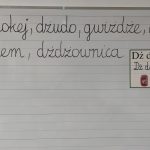 okej, dżudo, gwiżdże,
em, dżdżownica
Dż d